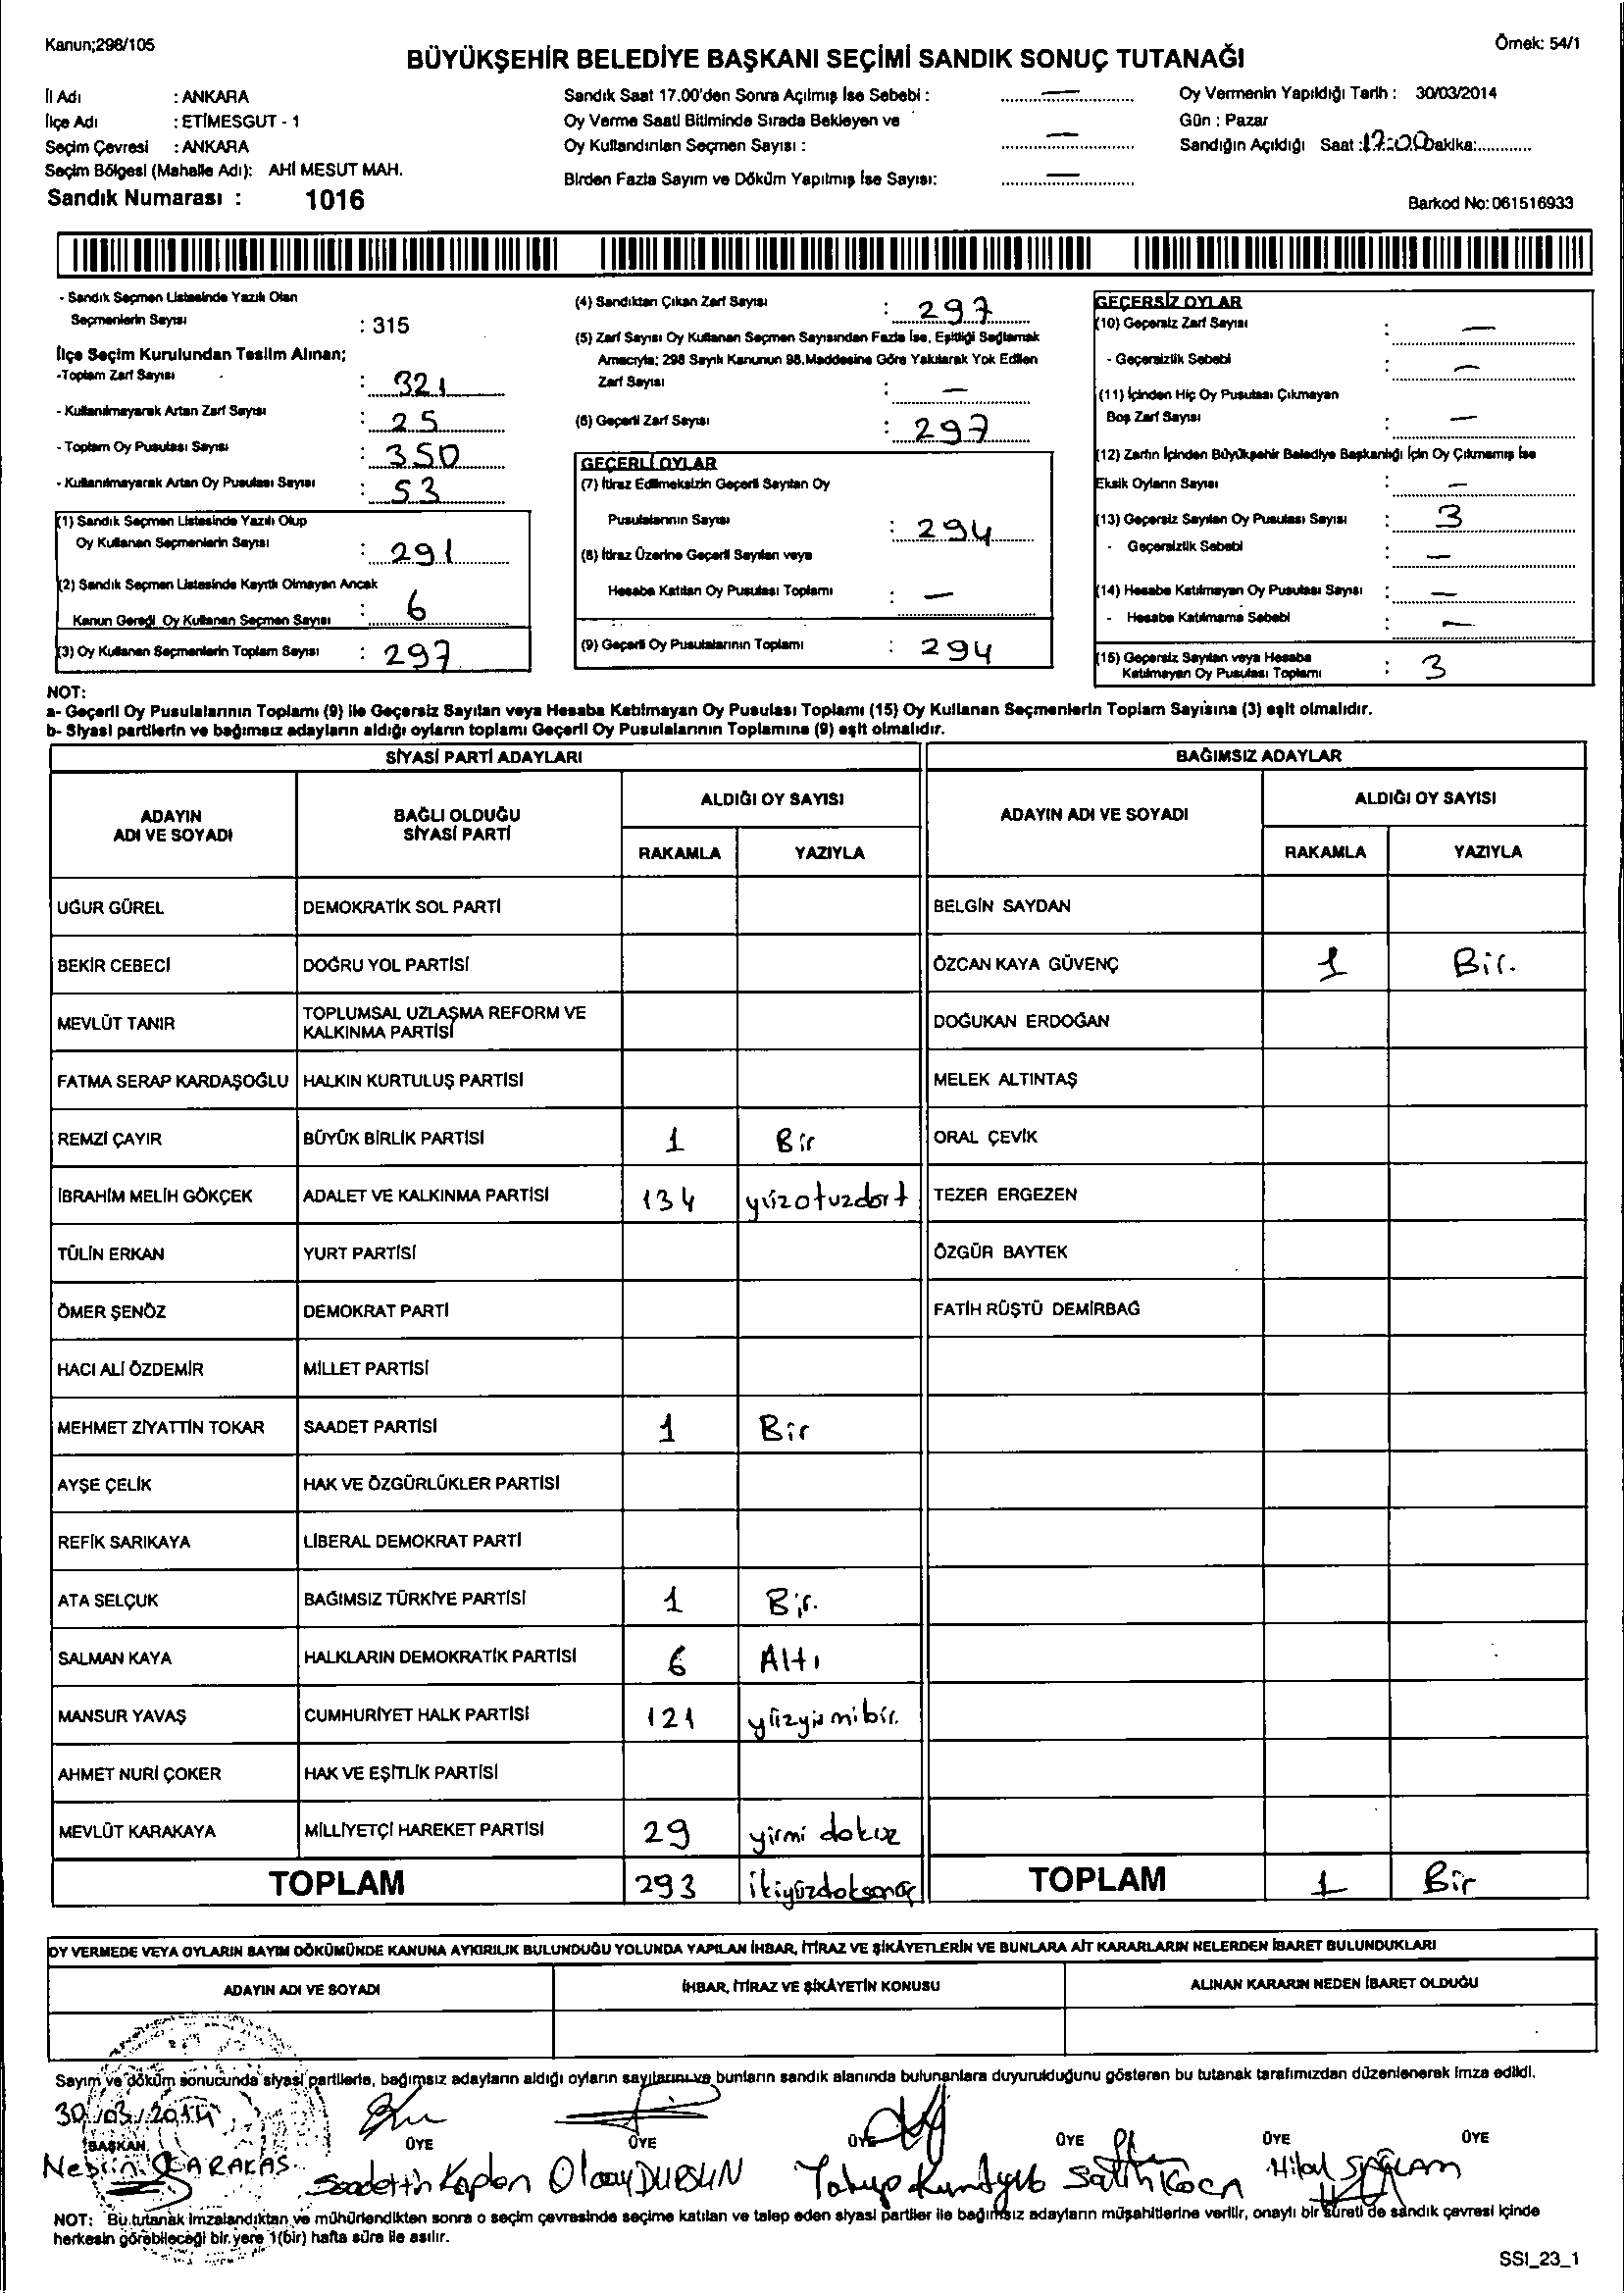 Kanun;298/105
Örnek: 54/1
BÜYÜKŞEHİR BELEDİYE BAŞKANI SEÇİMİ SANDIK SONUÇ TUTANAĞI
İl Adı : ANKARA
İlçe Adı : ETİMESGUT - 1
Seçim Çevresi : ANKARA
Seçim Bölgesi (Mahalle Adı): AHİ MESUT MAH.
Sandık Numarası : 1016
Sandık Saat 17.00'den Sonra Açılmış İse Sebebi : —
Oy Verme Saati Bitiminde Sırada Bekleyen ve
Oy Kullandırılan Seçmen Sayısı : —
Birden Fazla Sayım ve Döküm Yapılmış İse Sayısı: —
Oy Vermenin Yapıldığı Tarih : 30/03/2014
Gün : Pazar
Sandığın Açıldığı Saat :17:00 Dakika:............
Barkod No: 061516933
- Sandık Seçmen Listesinde Yazılı Olan
Seçmenlerin Sayısı : 315
İlçe Seçim Kurulundan Teslim Alınan;
-Toplam Zarf Sayısı : 321
- Kullanılmayarak Artan Zarf Sayısı : 25
- Toplam Oy Pusulası Sayısı : 350
- Kullanılmayarak Artan Oy Pusulası Sayısı : 53
(1) Sandık Seçmen Listesinde Yazılı Olup
Oy Kullanan Seçmenlerin Sayısı : 291
(2) Sandık Seçmen Listesinde Kayıtlı Olmayan Ancak
Kanun Gereği Oy Kullanan Seçmen Sayısı : 6
(3) Oy Kullanan Seçmenlerin Toplam Sayısı : 297
(4) Sandıktan Çıkan Zarf Sayısı : 297
(5) Zarf Sayısı Oy Kullanan Seçmen Sayısından Fazla İse, Eşitliği Sağlamak
Amacıyla; 298 Sayılı Kanunun 98.Maddesine Göre Yakılarak Yok Edilen
Zarf Sayısı : —
(6) Geçerli Zarf Sayısı : 297
GEÇERLİ OYLAR
(7) İtiraz Edilmeksizin Geçerli Sayılan Oy
Pusulalarının Sayısı : 294
(8) İtiraz Üzerine Geçerli Sayılan veya
Hesaba Katılan Oy Pusulası Toplamı : —
(9) Geçerli Oy Pusulalarının Toplamı : 294
GEÇERSİZ OYLAR
(10) Geçersiz Zarf Sayısı : —
- Geçersizlik Sebebi : —
(11) İçinden Hiç Oy Pusulası Çıkmayan
Boş Zarf Sayısı : —
(12) Zarfın İçinden Büyükşehir Belediye Başkanlığı İçin Oy Çıkmamış İse
Eksik Oyların Sayısı : —
(13) Geçersiz Sayılan Oy Pusulası Sayısı : 3
- Geçersizlik Sebebi : —
(14) Hesaba Katılmayan Oy Pusulası Sayısı : —
- Hesaba Katılmama Sebebi : —
(15) Geçersiz Sayılan veya Hesaba
Katılmayan Oy Pusulası Toplamı : 3
NOT:
a- Geçerli Oy Pusulalarının Toplamı (9) ile Geçersiz Sayılan veya Hesaba Katılmayan Oy Pusulası Toplamı (15) Oy Kullanan Seçmenlerin Toplam Sayısına (3) eşit olmalıdır.
b- Siyasi partilerin ve bağımsız adayların aldığı oyların toplamı Geçerli Oy Pusulalarının Toplamına (9) eşit olmalıdır.
SİYASİ PARTİ ADAYLARI
BAĞIMSIZ ADAYLAR
ADAYIN ADI VE SOYADI
BAĞLI OLDUĞU SİYASİ PARTİ
ALDIĞI OY SAYISI
RAKAMLA YAZIYLA
ADAYIN ADI VE SOYADI
ALDIĞI OY SAYISI
RAKAMLA YAZIYLA
UĞUR GÜREL DEMOKRATİK SOL PARTİ BELGİN SAYDAN
BEKİR CEBECİ DOĞRU YOL PARTİSİ ÖZCAN KAYA GÜVENÇ 1 Bir.
MEVLÜT TANIR TOPLUMSAL UZLAŞMA REFORM VE KALKINMA PARTİSİ DOĞUKAN ERDOĞAN
FATMA SERAP KARDAŞOĞLU HALKIN KURTULUŞ PARTİSİ MELEK ALTINTAŞ
REMZİ ÇAYIR BÜYÜK BİRLİK PARTİSİ 1 Bir ORAL ÇEVİK
İBRAHİM MELİH GÖKÇEK ADALET VE KALKINMA PARTİSİ 134 yüzotuzdört TEZER ERGEZEN
TÜLİN ERKAN YURT PARTİSİ ÖZGÜR BAYTEK
ÖMER ŞENÖZ DEMOKRAT PARTİ FATİH RÜŞTÜ DEMİRBAĞ
HACI ALİ ÖZDEMİR MİLLET PARTİSİ
MEHMET ZİYATTİN TOKAR SAADET PARTİSİ 1 Bir
AYŞE ÇELİK HAK VE ÖZGÜRLÜKLER PARTİSİ
REFİK SARIKAYA LİBERAL DEMOKRAT PARTİ
ATA SELÇUK BAĞIMSIZ TÜRKİYE PARTİSİ 1 Bir.
SALMAN KAYA HALKLARIN DEMOKRATİK PARTİSİ 6 Altı
MANSUR YAVAŞ CUMHURİYET HALK PARTİSİ 121 yüzyirmibir.
AHMET NURİ ÇOKER HAK VE EŞİTLİK PARTİSİ
MEVLÜT KARAKAYA MİLLİYETÇİ HAREKET PARTİSİ 29 yirmi dokuz
TOPLAM 293 ikiyüzdoksanüç TOPLAM 1 Bir
OY VERMEDE VEYA OYLARIN SAYIM DÖKÜMÜNDE KANUNA AYKIRILIK BULUNDUĞU YOLUNDA YAPILAN İHBAR, İTİRAZ VE ŞİKÂYETLERİN VE BUNLARA AİT KARARLARIN NELERDEN İBARET BULUNDUKLARI
ADAYIN ADI VE SOYADI İHBAR, İTİRAZ VE ŞİKÂYETİN KONUSU ALINAN KARARIN NEDEN İBARET OLDUĞU
Sayım ve döküm sonucunda siyasi partilerle, bağımsız adayların aldığı oyların sayılarını ve bunların sandık alanında bulunanlara duyurulduğunu gösteren bu tutanak tarafımızdan düzenlenerek imza edildi.
30/03/2014
BAŞKAN ÜYE ÜYE ÜYE ÜYE ÜYE ÜYE
Nesrin KARAKAŞ Saadettin Kaplan Olcay DURSUN Salih Koca Hilal SAĞLAM
NOT: Bu tutanak imzalandıktan ve mühürlendikten sonra o seçim çevresinde seçime katılan ve talep eden siyasi partiler ile bağımsız adayların müşahitlerine verilir, onaylı bir sureti de sandık çevresi içinde
herkesin görebileceği bir yere 1(bir) hafta süre ile asılır.
SSI_23_1